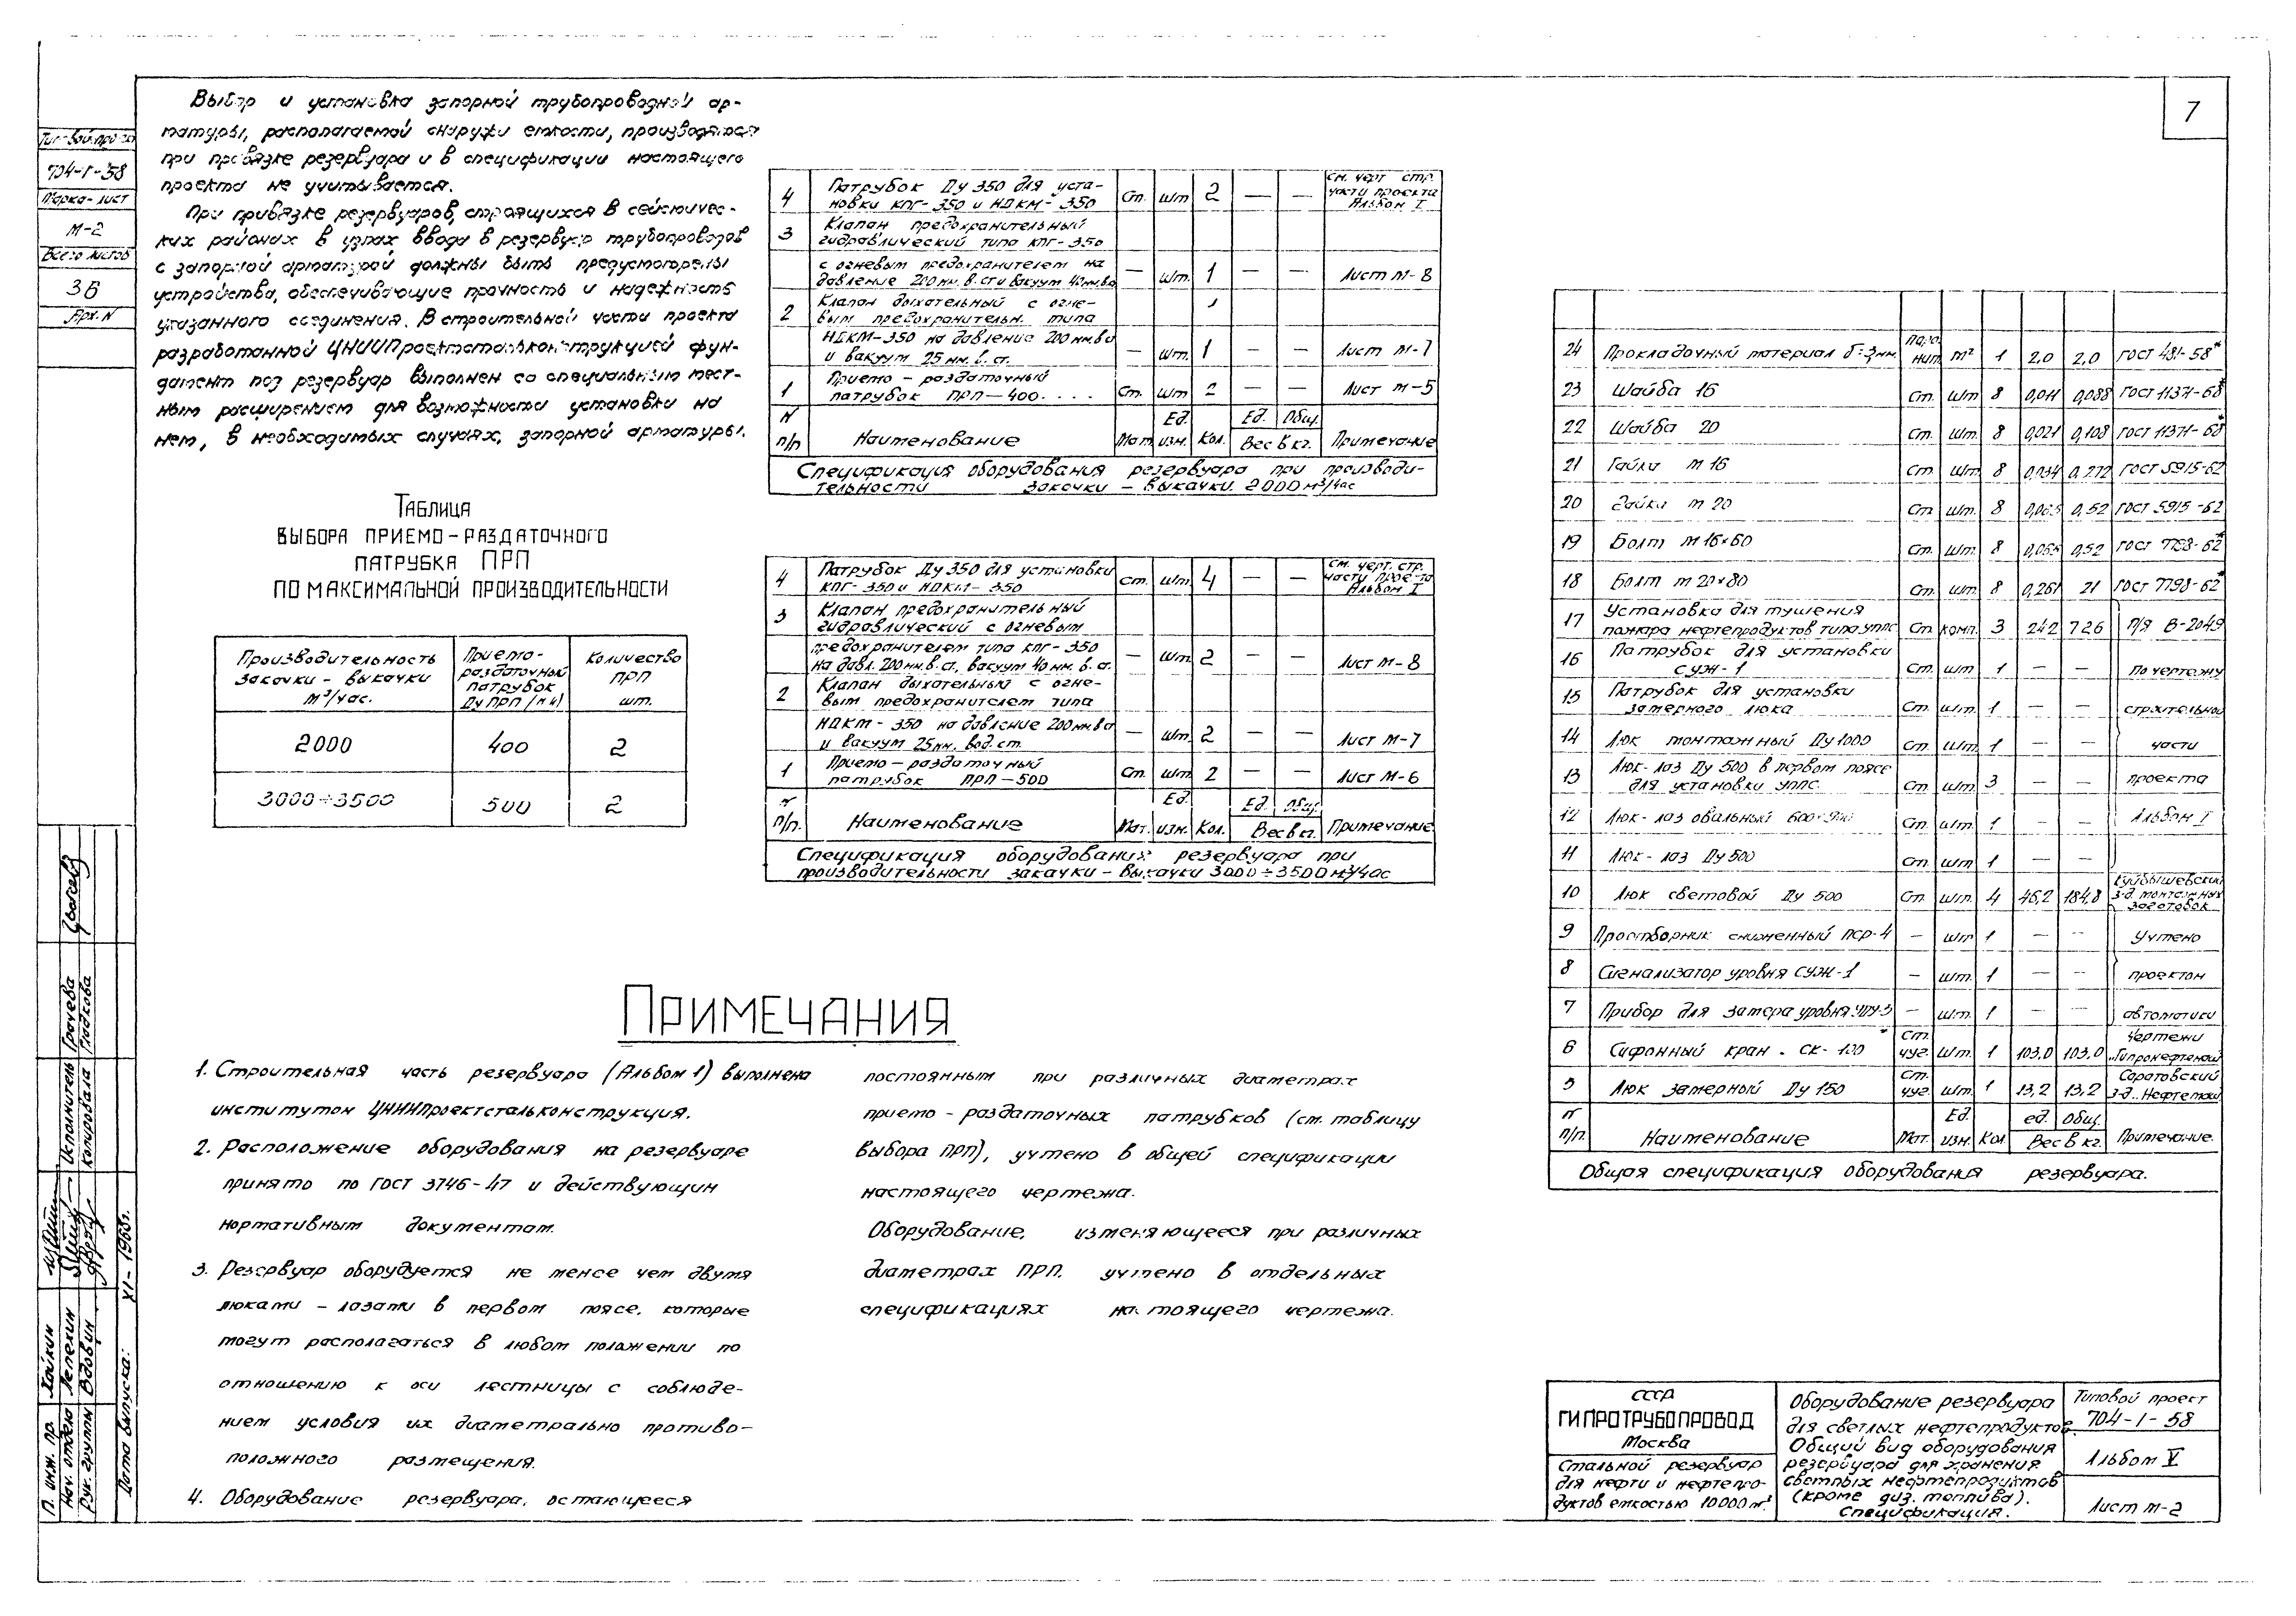 7
Типовой проект
704-1-58
Марка-лист
М-2
Всего листов
36
Арх. N
Выбор и установка запорной трубопроводной ар-
матуры, располагаемой снаружи емкости, производятся
при привязке резервуара и в спецификации настоящего
проекта не учитывается.
При привязке резервуаров, строящихся в сейсмичес-
ких районах в узлах ввода в резервуар трубопроводов
с запорной арматурой должны быть предусмотрены
устройства, обеспечивающие прочность и надежность
указанного соединения. В строительной части проекта
разработанной ЦНИИПроектстальконструкцией фун-
дамент под резервуар выполнен со специальным мест-
ным расширением для возможности установки на
нем, в необходимых случаях, запорной арматуры.
Таблица
выбора приемо-раздаточного
патрубка ПРП
по максимальной производительности
Производительность закачки-выкачки м³/час. | Приемо-раздаточный патрубок Ду ПРП (мм) | Количество ПРП шт.
2000 | 400 | 2
3000÷3500 | 500 | 2
4 | Патрубок Ду 350 для уста- | Ст. | шт | 2 | — | — | см. черт стр.
новки КПГ-350 и НДКМ-350 | части проекта Альбом I
3 | Клапан предохранительный
гидравлический типа КПГ-350
с огневым предохранителем на | — | шт. | 1 | — | — | Лист М-8
давление 200 мм. в. ст и вакуум 40 мм. в.с
2 | Клапан дыхательный с огне-
вым предохранительн. типа
НДКМ-350 на давление 200 мм. в с | — | шт. | 1 | — | — | Лист М-7
и вакуум 25 мм. в. ст.
1 | Приемо-раздаточный | Ст. | шт. | 2 | — | — | Лист М-5
патрубок ПРП-400. . . .
N п/п | Наименование | Мат. | Ед. изм. | Кол. | Ед. | Общ. | Вес в кг. | Примечание
Спецификация оборудования резервуара при производи-
тельности закачки – выкачки. 2000 м³/час
4 | Патрубок Ду 350 для установки | Ст. | шт. | 4 | — | — | см. черт. стр.
КПГ-350 и НДКМ-350 | части проек-та Альбом I
3 | Клапан предохранительный
гидравлический с огневым
предохранителем типа КПГ-350 | — | шт. | 2 | — | — | Лист М-8
на давл. 200 мм. в. ст., вакуум 40 мм. в. ст.
2 | Клапан дыхательный с огне-
вым предохранителем типа
НДКМ-350 на давление 200 мм. в ст | — | шт. | 2 | — | — | Лист М-7
и вакуум 25 мм. вод. ст.
1 | Приемо-раздаточный | Ст. | шт | 2 | — | — | Лист М-6
патрубок ПРП-500
п/п. | Наименование | Мат. | Ед. изм. | Кол. | Ед. | Общ. | Вес в кг. | Примечание
Спецификация оборудования резервуара при
производительности закачки – выкачки 3000÷3500 м³/час
24 | Прокладочный материал δ=3 мм. | Паро нит | м² | 1 | 2,0 | 2,0 | ГОСТ 481-58*
23 | Шайба 16 | Ст. | шт | 8 | 0,011 | 0,088 | ГОСТ 11371-68*
22 | Шайба 20 | Ст. | шт. | 8 | 0,021 | 0,168 | ГОСТ 11371-68*
21 | Гайка М 16 | Ст. | шт | 8 | 0,034 | 0,272 | ГОСТ 5915-62
20 | Гайка М 20 | Ст | шт. | 8 | 0,065 | 0,52 | ГОСТ 5915-62
19 | Болт М 16×60 | Ст. | шт. | 8 | 0,065 | 0,52 | ГОСТ 7798-62*
18 | Болт М 20×80 | Ст. | шт. | 8 | 0,261 | 21 | ГОСТ 7798-62*
17 | Установка для тушения | Ст. | комп. | 3 | 242 | 726 | П/Я В-2049
пожара нефтепродуктов типа УППС
16 | Патрубок для установки СУЖ-1 | Ст. | шт | 1 | — | — | По чертежу
15 | Патрубок для установки | Ст. | шт. | 1 | — | — | строительной
замерного люка
14 | Люк монтажный Ду 1000 | Ст. | шт | 1 | — | — | части
13 | Люк-лаз Ду 500 в первом поясе | Ст. | шт. | 3 | — | — | проекта
для установки УППС.
12 | Люк-лаз овальный 600×900 | Ст. | шт. | 1 | — | — | Альбом I
11 | Люк-лаз Ду 500 | Ст. | шт | 1 | — | —
10 | Люк световой Ду 500 | Ст. | шт. | 4 | 46,2 | 184,8 | Куйбышевский з-д. монтажных заготовок
9 | Пробоотборник сниженный ПСР-4 | — | шт | 1 | — | — | Учтено
8 | Сигнализатор уровня СУЖ-1 | — | шт. | 1 | — | — | проектом
7 | Прибор для замера уровня УДУ-5 | — | шт. | 1 | — | — | автоматики
6 | Сифонный кран. СК-100 | Ст. чуг. | шт. | 1 | 103,0 | 103,0 | Чертежи „Гипронефтемаш
5 | Люк замерный Ду 150 | Ст. чуг. | шт. | 1 | 13,2 | 13,2 | Саратовский з-д „Нефтемаш
п/п. | Наименование | Мат. | Ед. изм. | Кол. | ед. | Общ. | Вес в кг. | Примечание.
Общая спецификация оборудования резервуара.
Примечания
1. Строительная часть резервуара (Альбом 1) выполнена
институтом ЦНИИПроектстальконструкция.
2. Расположение оборудования на резервуаре
принято по ГОСТ 3746-47 и действующим
нормативным документам.
3. Резервуар оборудуется не менее чем двумя
люками – лазами в первом поясе, которые
могут располагаться в любом положении по
отношению к оси лестницы с соблюде-
нием условия их диаметрально противо-
положного размещения.
4. Оборудование резервуара, остающееся
постоянным при различных диаметрах
приемо – раздаточных патрубков (см. таблицу
выбора ПРП), учтено в общей спецификации
настоящего чертежа.
Оборудование, изменяющееся при различных
диаметрах ПРП, учтено в отдельных
спецификациях настоящего чертежа.
Исполнитель Грачева
Копировала Гладкова
П. инж. пр. Хайкин
Нач. отдела Лепехин
Рук. группы Вдовин
Дата выпуска: XI-1968г.
СССР
ГИПРОТРУБОПРОВОД
Москва
Стальной резервуар
для нефти и нефтепро-
дуктов емкостью 10000 м³
Оборудование резервуара
для светлых нефтепродуктов.
Общий вид оборудования
резервуара для хранения
светлых нефтепродуктов
(кроме диз. топлива).
Спецификация.
Типовой проект
704-1-58
Альбом V
Лист М-2